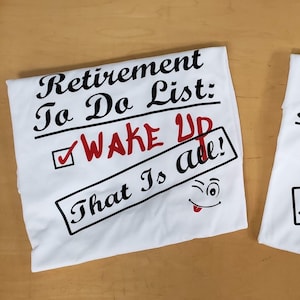 Retirement
To Do List:
WAKE UP
That Is All!